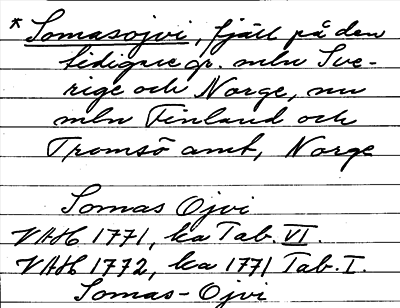 * Somasojvi, fjäll på den
tidigare gr. mln Sve-
rige och Norge, nu
mln Finland och
Tromsö amt, Norge
Somas Ojvi
VAH 1771, ka Tab. VI.
VAH 1772, ka 1771 Tab. I.
Somas-Ojvi